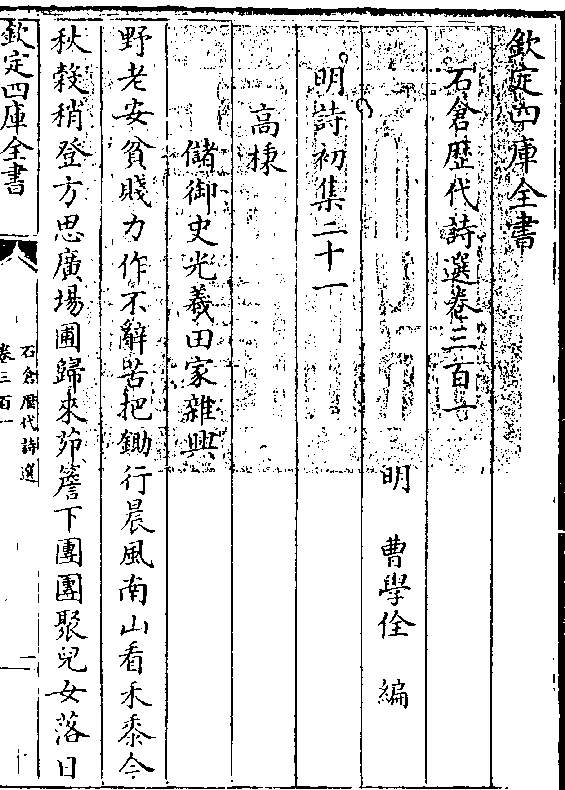 欽定四庫全書
石倉歴代詩選卷三百一
明　曹學佺　編
明詩初集二十一
高棅
儲御史光羲田家雜興
野老安貧賤力作不辭苦把鋤行晨風南山看禾黍今
秋榖稍登方思廣場圃歸來茆簷下團團聚兒女落日
欽定四庫全書
石倉歴代詩選
卷三百一
一